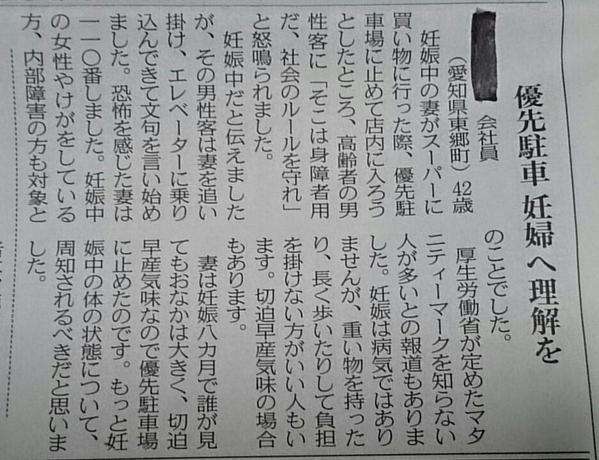 優先駐車 妊婦へ理解を
会社員
(愛知県東郷町) 42歳
妊娠中の妻がスーパーに
買い物に行った際、優先駐
車場に止めて店内に入ろう
としたところ、高齢者の男
性客に「そこは身障者用
だ、社会のルールを守れ」
と怒鳴られました。
妊娠中だと伝えました
が、その男性客は妻を追い
掛け、エレベーターに乗り
込んできて文句を言い始め
ました。恐怖を感じた妻は
一一〇番しました。妊娠中
の女性やけがをしている
方、内部障害の方も対象と
のことでした。
厚生労働省が定めたマタ
ニティーマークを知らない
人が多いとの報道もありま
した。妊娠は病気ではあり
ませんが、重い物を持った
り、長く歩いたりして負担
を掛けない方がいい人もい
ます。切迫早産気味の場合
もあります。
妻は妊娠八カ月で誰が見
てもおなかは大きく、切迫
早産気味なので優先駐車場
に止めたのです。もっと妊
娠中の体の状態について、
周知されるべきだと思いま
した。